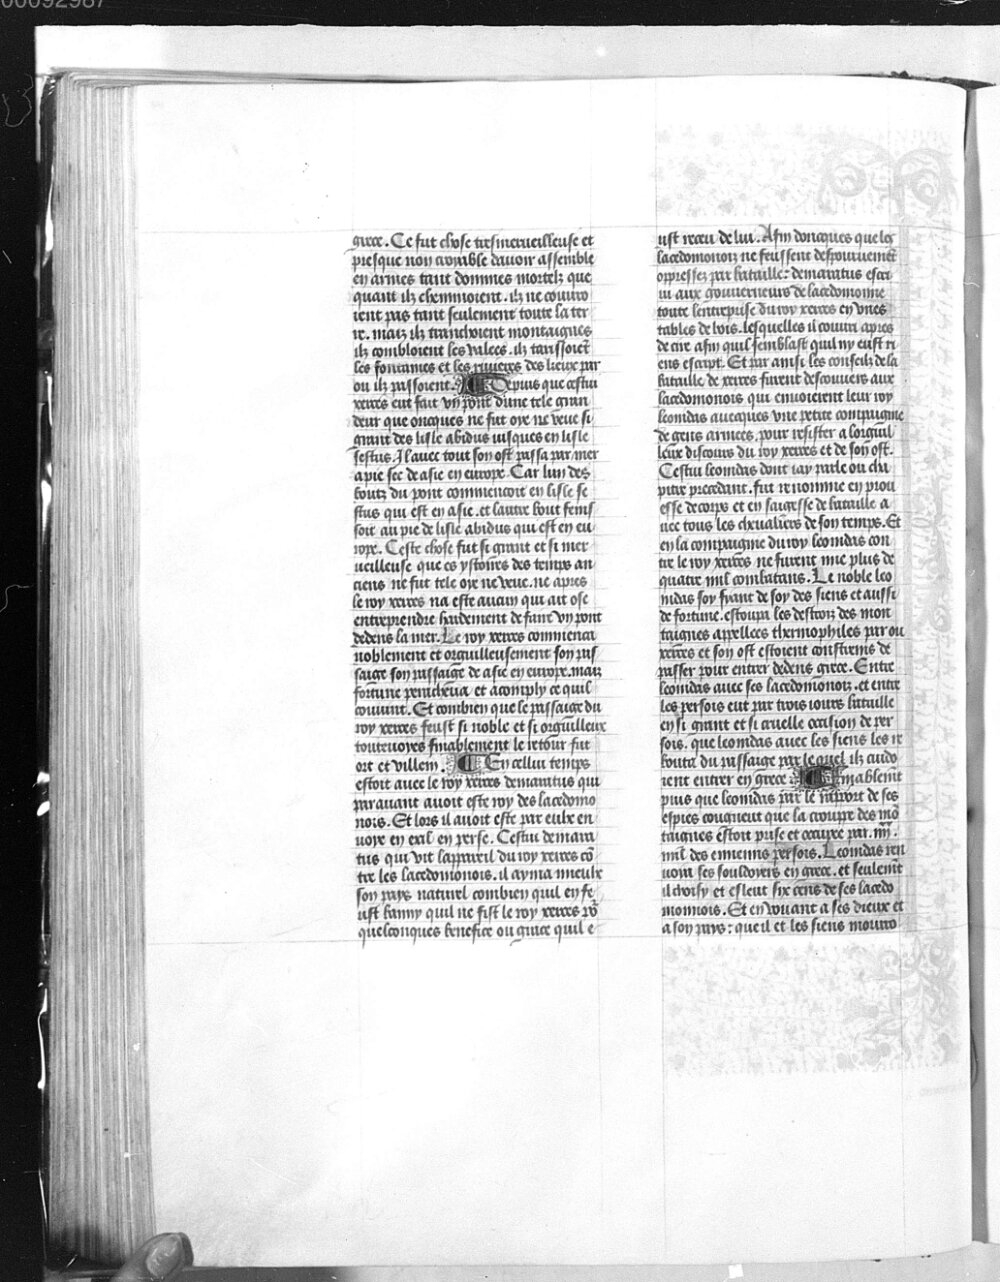 00092987
grece. Ce fut chose tresmerueilleuse et
presque non croyable dauoir assemble
en armes tant dommes mortelz que
quant ilz cheminoient. ilz ne couuro
ient pas tant seulement toute la ter
re. maiz ilz tranchoient montaignes
ilz combloient les valees. ilz tarissoiēt
les fontaines et les riuieres des lieux par
ou ilz passoient. Depuis que cestui
xerces eut fait vn pont dune tele gran
deur que oncques ne fut oye ne veue si
grant des lisle abidus iusques en lisle
sestus. Il auec tout son ost passa par mer
a pie sec de asie en europe. Car lun des
boutz du pont commencoit en lisle se
stus qui est en asie. et lautre bout feniss
soit au pie de lisle abidus qui est en eu
rope. Ceste chose fut si grant et si mer
ueilleuse que es ystoires des temps an
ciens ne fut tele oye ne veue. ne apres
le roy xerces na este aucun qui ait ose
entreprendre hardement de faire vn pont
dedens la mer. Le roy xerces commenca
noblement et orguilleusement son pas
saige son passaige de asie en europe. maiz
fortune paracheua et acomply ce quil
conuint. Et combien que le passaige du
roy xerces feust si noble et si orguilleux
toutesuoyes finablement le retour fut
ort et villein. En cellui temps
estoit auec le roy xerces demaratus qui
parauant auoit este roy des lacedemo
nois. Et lors il auoit este par eulx en
uoye en exil en perse. Cestui demara
tus qui vit lappareil du roy xerces cō
tre les lacedemonois. il ayma mieulx
son pays naturel combien quil en fe
ust banny quil ne fist le roy xerces po
quelconques benefice ou grace quil e
ust receu de lui. Afin doncques que les
lacedemonois ne feussent despourueuemēt
oppressez par bataille: demaratus escri
ui aux gouuerneurs de lacedemonne
toute lentreprise du roy xerces en vnes
tables de bois. lesquelles il couuri apres
de cire afin quil semblast quil ny eust ri
ens escript. Et par ainsi les conseilz de la
bataille de xerces furent descouuers aux
lacedemonois qui enuoierent leur roy
leonidas auecques vne petite compaignie
de gens armees, pour resister a lorguil
leux discours du roy xerces et de son ost.
Cestui leonidas dont iay parle ou cha
pitre precedant. fut renomme en prou
esse de corps et en saigesse de bataille a
uec tous les cheualiers de son temps. Et
en la compaignie du roy leonidas con
tre le roy xerces ne furent mie plus de
quatre mil combatans. Le noble leo
nidas soy fiant de soy des siens et aussi
de fortune. estoupa les destroiz des mon
taignes appellees thermophiles par ou
xerces et son ost estoient constrains de
passer pour entrer dedens grece. Entre
leonidas auec ses lacedemonois. et entre
les persois eut par trois iours bataille
en si grant et si cruelle occision de per
sois. que leonidas auec les siens les re
bouta du passaige par le quel ilz cuido
ient entrer en grece. Finablemēt
puis que leonidas par le raport de ses
espies congneut que la croupe des mō
taignes estoit prise et occupee par. iiii.
mil des ennemis persois. Leonidas ren
uoia ses souldoyers en grece. et seulemēt
il choisy et esleut six cens de ses lacede
monnois. Et en vouant a ses dieux et
a son pays: que il et les siens mourro